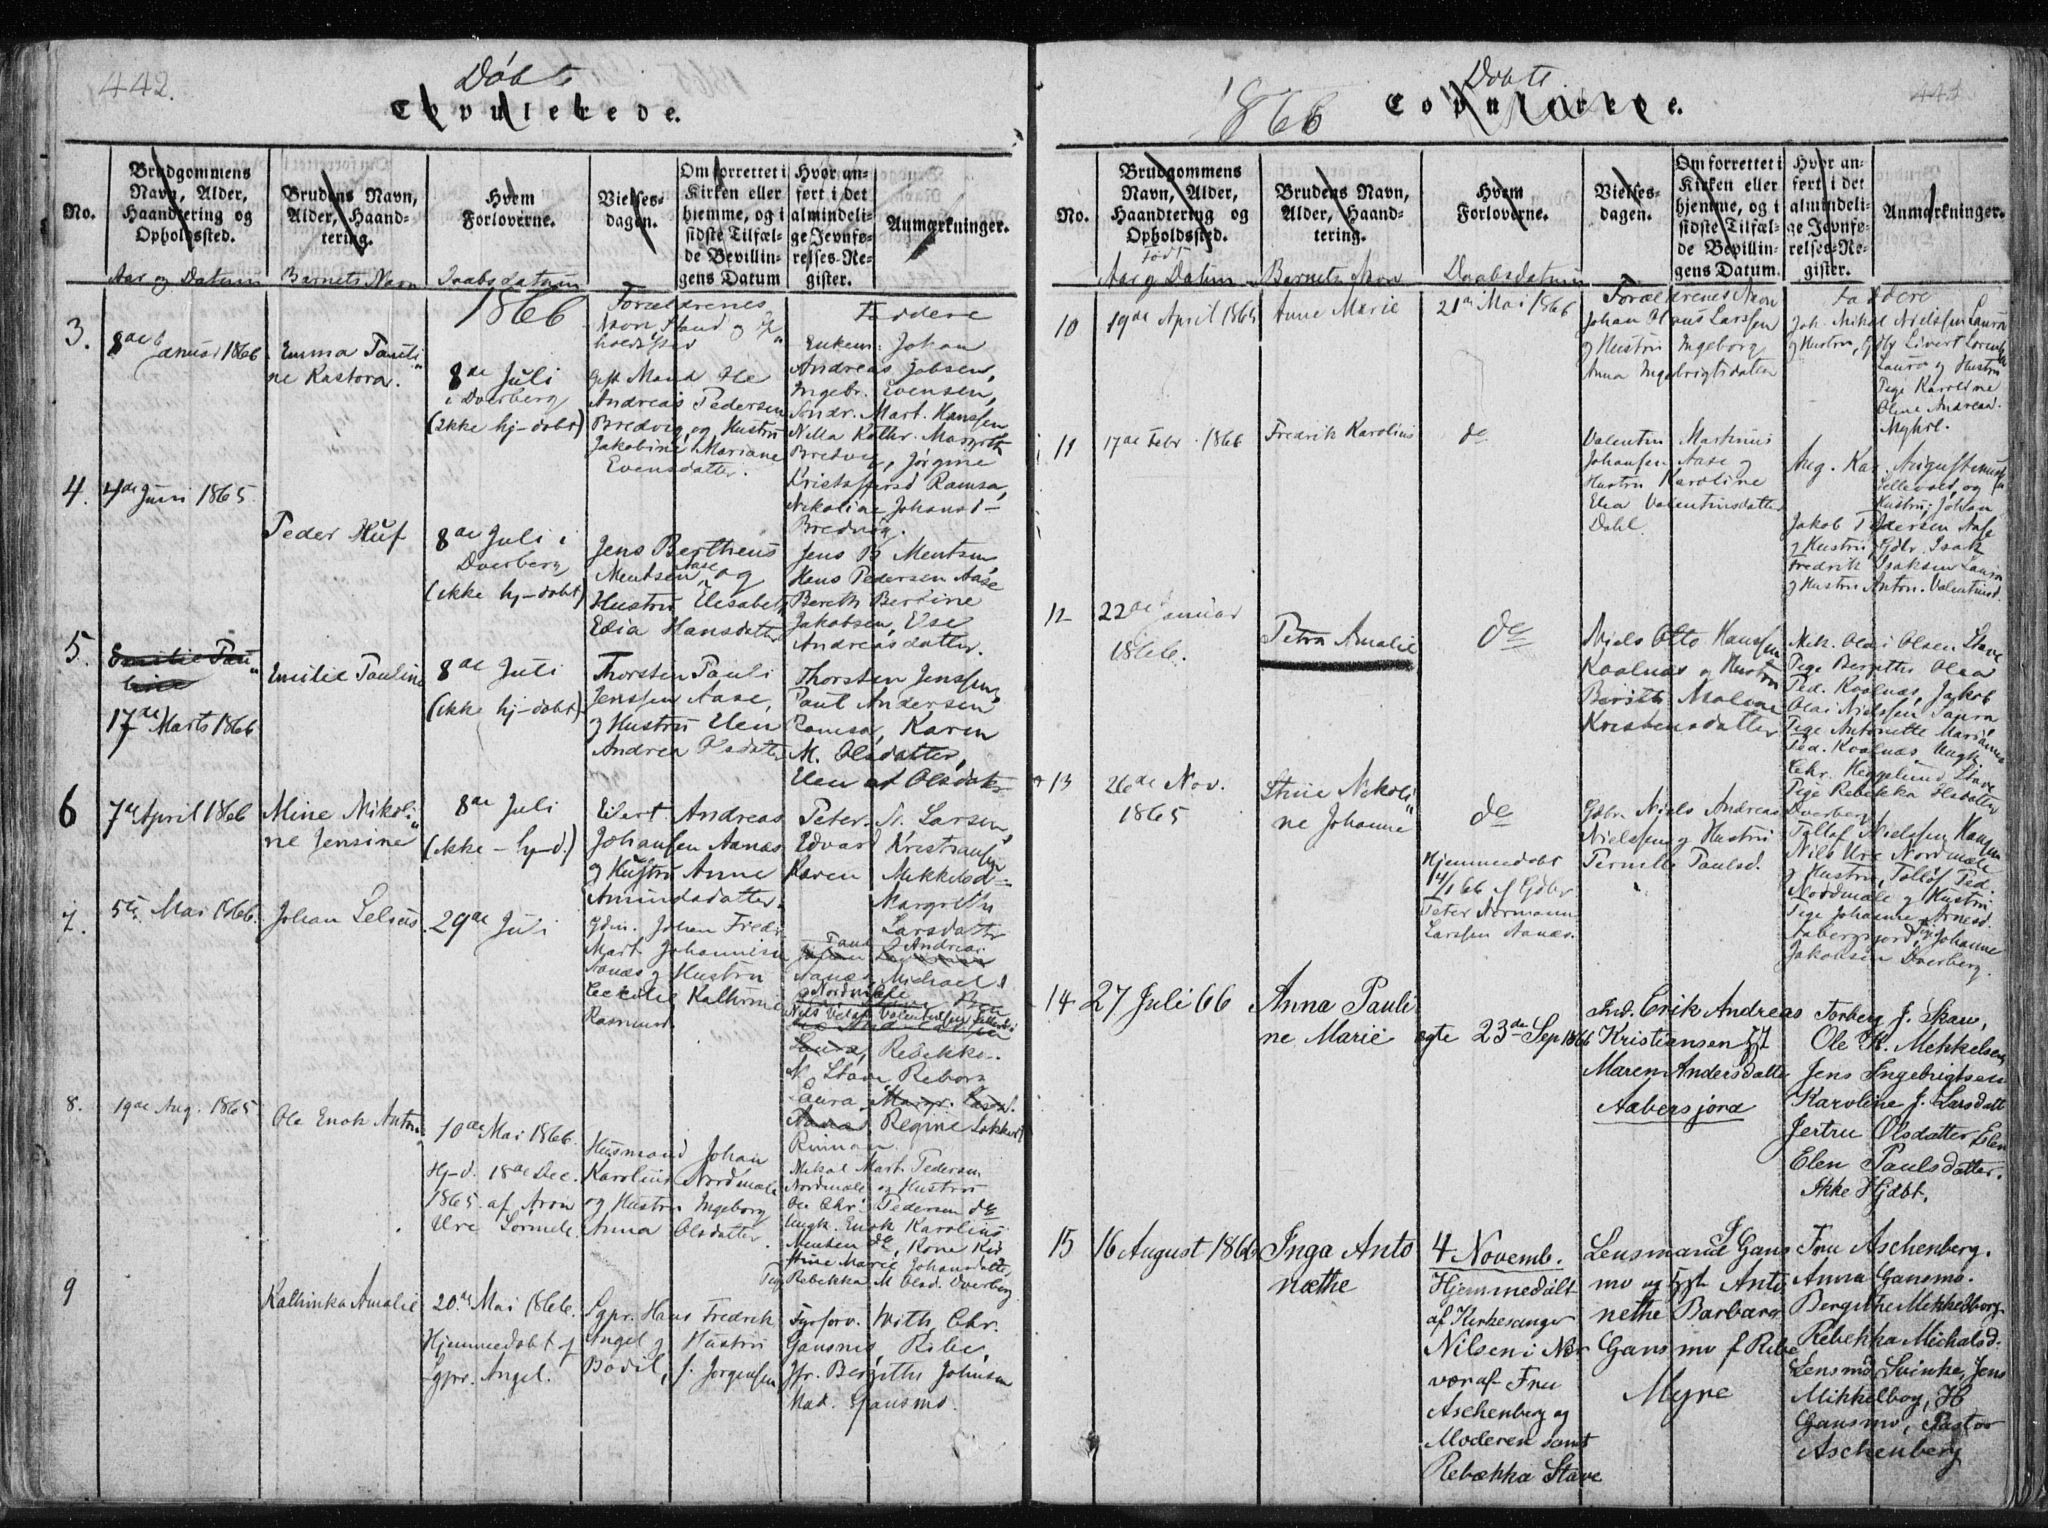 442.
Döbte
Copulerede.
No.
Brudgommens Navn, Alder, Haandtering og Opholdssted.
Brudens Navn, Alder, Haandtering.
Hvem Forloverne.
Vielsesdagen.
Om forrettet i Kirken eller hjemme, og i sidste Tilfælde Bevillingens Datum
Hvor anført i det almindelige Jevnførelses-Register.
Anmærkninger.
Aar og Datum
Barnets Navn
Daabsdatum
1866
Forældrenes
Navn, Stand og Op„
holdssted
Faddere
3.
8de Januar 1866
Emma Pauli„
ne Kastora.
8de Juli
i Dverberg
(ikke hj-döbt)
Gift Mand Ole
Andreas Pedersen
Bredvig og Hustru
Jakobine Mariane
Evensdatter.
Enkem. Johan
Andreas Jobsen,
Ingebr. Evensen,
Söndr. Mart. Hanssen
Nilla Kathr. Margreth
Bredvig, Jörgine
Kristoffersd Ramsa,
Nikoline Johansd-
Bredvig.
4.
4de Juni 1865
Peder Huf
8de Juli i
Dverberg
(ikke hj-döbt)
Jens Bertheus
Mentsen Aase og
Hustru Elisabet
Edia Hansdatter
Jens B Mentsen,
Hans Pedersen Aase
Bereth Berdine
Jakobsen, Else
Andreasdatter.
5.
Emilie Pau„
line
17de Marts 1866
Emilie Pauline
8de Juli
(ikke hj-döbt)
Thorsten Pauli
Jenssen Aase,
og Hustru Elen
Andrea Olsdatter
Thorsten Jenssen,
Paul Andersen
Ramsa, Karen
M. Olsdatter,
Elen A Olsdatr
6
7de April 1866
Mine Nikoli„
ne Jensine
8de Juli
(ikke-hj-d.)
Eilert Andreas
Johansen Aanæs
og Hustru Anne
Amundsdatter.
Peter N. Larsen,
Edvard Kristiansen
Karen Mikkelsd=
Margrethe
Larsdatter
7.
5te Mai 1866.
Johan Selius.
29de Juli
Gdm. Johan Fredr.
Mart. Johannesen
Aanæs og Hustru
Cecilie Kathrine
Rasmusd.
Paul Andreas
Aanæs, Michael
Nordmæle
Rebekka
Stave, Reborg
Laura
Regine Lökke
Rinnan
8.
19de Aug. 1865
Ole Enok Anton
10de Mai 1866.
Hj-d. 18de Dec.
1865 af Aron
Ure Sörmele
Husmand Johan
Karolius Nordmæle
og Hustru Ingeborg
Anna Olsdatter.
Mikal Mart. Pedersen
Nordmæle og Hustru
Ole Chr. Pedersen do
Ungk. Enok Karolius
Mentsen do, Kone
Stine Marie Johansdatter,
Pige Rebekka M Olsd. Dverberg
9
Kathinka Amalie
20de Mai 1866.
Hjemmedöbt af
Sgpr. Angel.
Sgpr. Hans Fredrik
Angel og Hustru
Bodil, f. Jörgensen
Fyrforv. With, Chr.
Gansmo, Ribe,
Jfr. Bergithe Johnsen
Mad. Gansmo.
1866
Döbte
Copulerede.
443
No.
Brudgommens Navn, Alder, Haandtering og Opholdssted.
Brudens Navn, Alder, Haandtering.
Hvem Forloverne.
Vielsesdagen.
Om forrettet i Kirken eller hjemme, og i sidste Tilfælde Bevillingens Datum.
Hvor anført i det almindelige Jevnførelses-Register.
Anmærkninger.
födt
Aar og Datum
Barnets Navn
Daabsdatum
Forældrenes Navn
Faddere
10
19de April 1865
Anne Marie
21de Mai 1866
Johan Olaus Larssen
og Hustru Ingeborg
Anna Ingebrigtsdatter
Joh. Mikal Nielssen Laura
og Hustru, Gdbr Sivert Lorents
Laura og Hustru
Pige Karoline
Oline Andreasd.
Myhre.
11
17de Febr. 1866
Fredrik Karolius
do
Valentin Martinus
Johansen Aase og
Hustru Karoline
Elea Valentinsdatter
Dahl
Aug. Kar. Augustinussen
Sellevold, og
Hustru, Johan
Jakob Pedersen Aase
og Hustru, Gdbr. Isak
Fredrik Isaksen Laura
og Hustru Anton. Valentinsd.
12
22de Januar
1866.
Petra Amalie
do
Niels Otto Hanssen
Kvalnæs og Hustru
Berith Malene
Kristensdatter
Mek. Olai Olsen Stave
Pige Bergitte Olea
Ped. Kvalnæs, Jakob
Olai Nielssen
Pige Antonette Marianne
Ped. Kvalnæs Ungk.
Chr. Heggelund Stave
Pige Rebekka Olsdatter
Dverberg
13
26de Nov.
1865
Stine Nikoli„
ne Johanne
do
Hjemmedöbt
14/1 66 af Gdbr
Peter Normann
Larssen Aanæs.
Gdbr Niels Andreas
Nielssen og Hustru
Pernille Paulsd.
Tollof Nielssen Hansen
Nils Ure Nordmæle
og Hustru, Tollöf Ped.
Nordmæle og Hustru
Pige Johanne Arnesd.
Aabergsjord, Pige Johanne
Jakobsen Dverberg.
14
27 Juli 66
Anna Pauli
ne Marie
ægte 23de Sep 1866
Ind. Erik Andreas
Kristiansen Hst
Maren Andersdatter
Aabersjord
Torberg J. Skav,
Ole K. Mekkelsen,
Jens Ingebrigtsen
Karoline J. Larsdatt
Jertru Olsdatter Elen
Elen Paulsdatter.
Ikke Hjdöbt.
15
16 August 1866
Inga Anto
nethe
4 Novemb.
Hjemmedöbt
af Kirkesanger
Nilsen i Nær
vær af Fru
Aschenberg og
Moderen samt
Rebækka Stave
Lensmand J Gans
mo og Hst Anto
nethe Barbara
Gansmo f Ribe
Myre
Fru Aschenberg.
Anna Gansmo.
Bergithe Mikkelborg
Rebekka Michalsd.
Lensmd Svinke, Jens
Mikkelborg, H
Gansmo, Pastor
Aschenberg